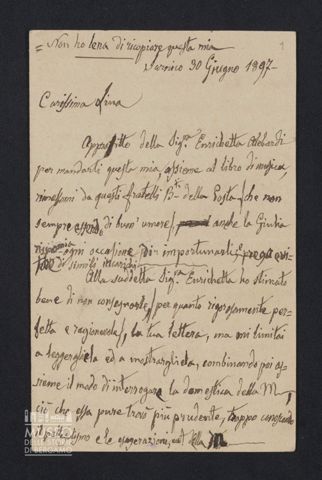 = Non ho lena di ricopiare questa mia
1
Sarnico 30 Giugno 1897-
Carissima Lina
Approfitto della Sig.ra Enrichetta Alebardi
per mandarti questa mia, assieme al libro di musica,
rimessomi da questi fratelli B.ti della Posta (che non
sempre essendo di buon'umore), anche la Giulia
risparmia ogni occasione di importunarli, prega evi-
tare di simili incarichi
Alla suddetta Sig.ra Enrichetta ho stimato
bene di non consegnarle, per quanto rigorosamente per-
fetta e ragionevole, la tua lettera, ma mi limitai
a leggergliela ed a mostrargliela, combinando poi as-
sieme il modo di interrogare la domestica della M,
ciò che essa pure trovò più prudente, troppo conoscendo
il e le esagerazioni della M
MUSEO
DELLE STORIE
DI BERGAMO